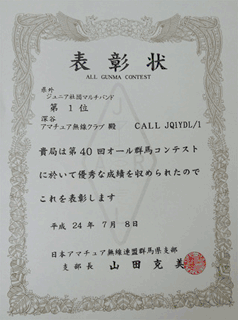 表彰状
ALL GUNMA CONTEST
県外
ジュニア社団マルチバンド
第 1 位
深谷
アマチュア無線クラブ 殿 CALL JQ1YDL/1
貴局は第40回オール群馬コンテスト
に於いて優秀な成績を収められたので
これを表彰します
平成 24年 7月 8日
日本アマチュア無線連盟群馬県支部
支部長 山田克美